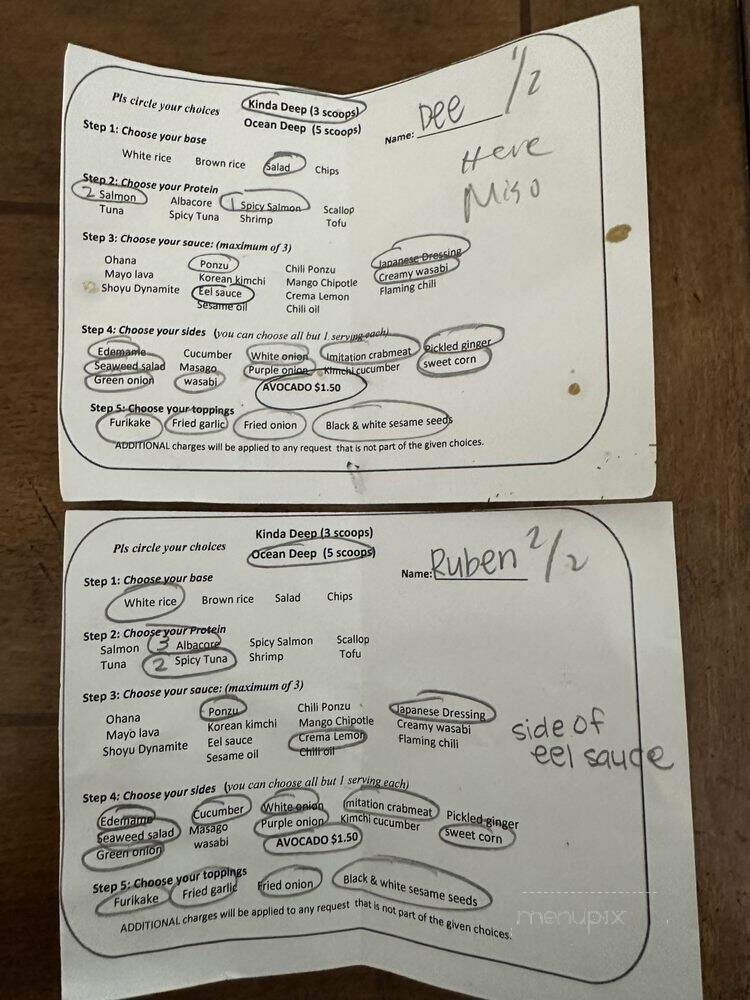 Pls circle your choices
Kinda Deep (3 scoops)
Ocean Deep (5 scoops)
Name: Dee 1/2
Here
Miso
Step 1: Choose your base
White rice Brown rice Salad Chips
Step 2: Choose your Protein
2 Salmon Albacore 1 Spicy Salmon Scallop
Tuna Spicy Tuna Shrimp Tofu
Step 3: Choose your sauce: (maximum of 3)
Ohana Ponzu Chili Ponzu Japanese Dressing
Mayo lava Korean kimchi Mango Chipotle Creamy wasabi
Shoyu Dynamite Eel sauce Crema Lemon Flaming chili
Sesame oil Chili oil
Step 4: Choose your sides (you can choose all but 1 serving each)
Edemame Cucumber White onion Imitation crabmeat Pickled ginger
Seaweed salad Masago Purple onion Kimchi cucumber sweet corn
Green onion wasabi AVOCADO $1.50
Step 5: Choose your toppings
Furikake Fried garlic Fried onion Black & white sesame seeds
ADDITIONAL charges will be applied to any request that is not part of the given choices.
Kinda Deep (3 scoops)
Pls circle your choices
Ocean Deep (5 scoops)
Name: Ruben 2/2
Step 1: Choose your base
White rice Brown rice Salad Chips
Step 2: Choose your Protein
Salmon 3 Albacore Spicy Salmon Scallop
Tuna 2 Spicy Tuna Shrimp Tofu
Step 3: Choose your sauce: (maximum of 3)
Ohana Ponzu Chili Ponzu Japanese Dressing
Mayo lava Korean kimchi Mango Chipotle Creamy wasabi
Shoyu Dynamite Eel sauce Crema Lemon Flaming chili
Sesame oil Chili oil
side of
eel sauce
Step 4: Choose your sides (you can choose all but 1 serving each)
Edemame Cucumber White onion imitation crabmeat Pickled ginger
Seaweed salad Masago Purple onion Kimchi cucumber sweet corn
Green onion wasabi AVOCADO $1.50
Step 5: Choose your toppings
Furikake Fried garlic Fried onion Black & white sesame seeds
ADDITIONAL charges will be applied to any request that is not part of the given choices.
menupix